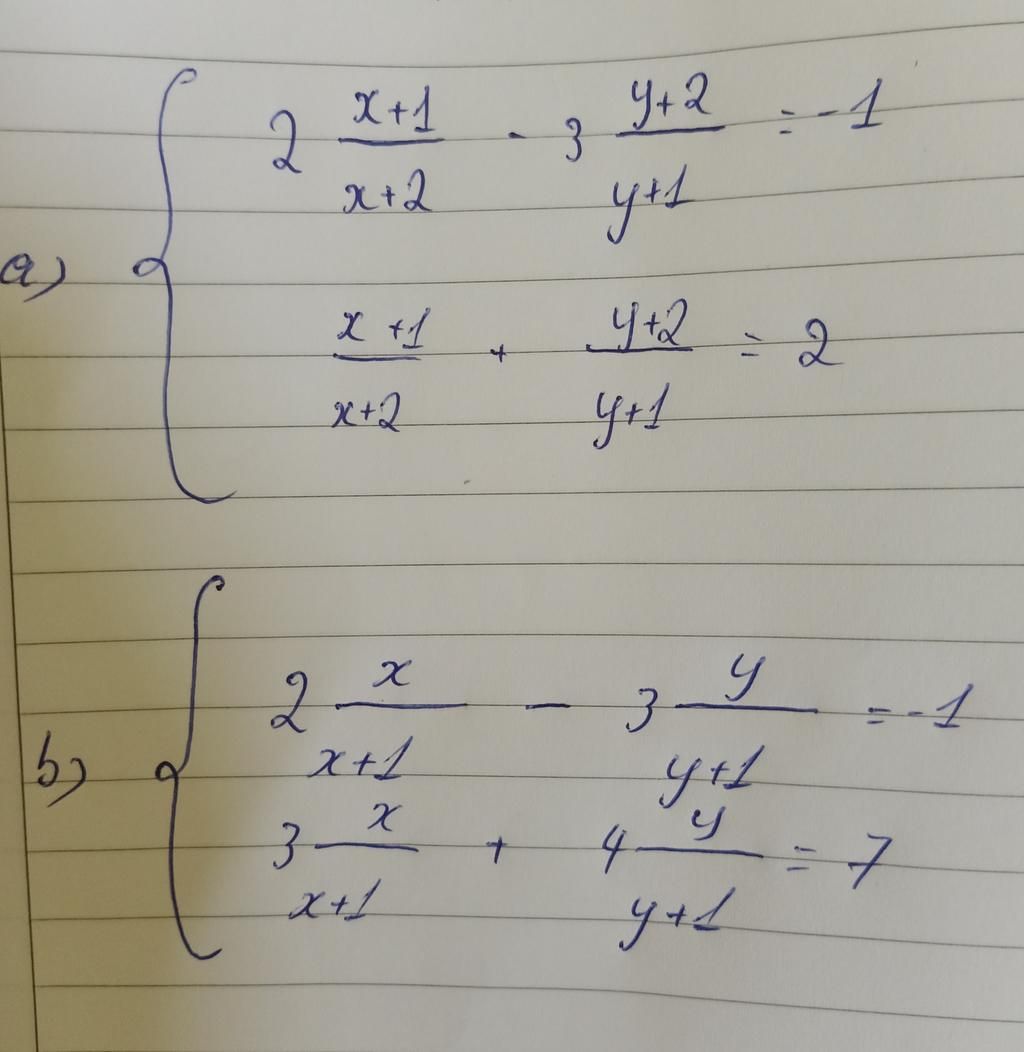 a)
2 x+1/x+2 - 3 y+2/y+1 = -1
x+1/x+2 + y+2/y+1 = 2
b)
2 x/x+1 - 3 y/y+1 = -1
3 x/x+1 + 4 y/y+1 = 7